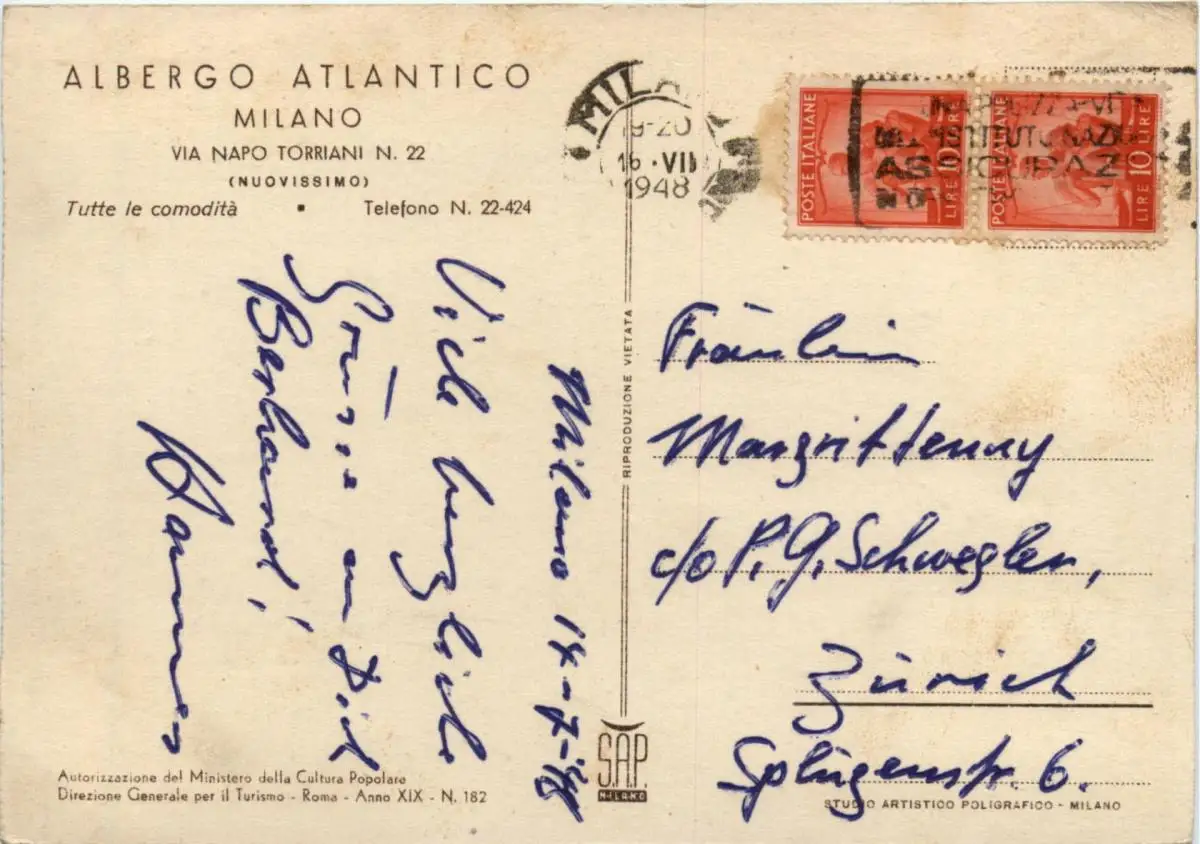 ALBERGO ATLANTICO
MILANO
VIA NAPO TORRIANI N. 22
(NUOVISSIMO)
Tutte le comodità ▪ Telefono N. 22-424
MILA
19-20
16 · VII
1948
POSTE ITALIANE
LIRE 10
POSTE ITALIANE
LIRE 10
Milano 14-7-48
Viele herzliche
Grüsse an Dich
Hannes
Autorizzazione del Ministero della Cultura Popolare
Direzione Generale per il Turismo - Roma - Anno XIX - N. 182
RIPRODUZIONE VIETATA
S.A.P.
MILANO
Fräulein
Margrit Jenny
c/o P. G. Schwegler,
Zürich
Splügenstr. 6.
STUDIO ARTISTICO POLIGRAFICO - MILANO